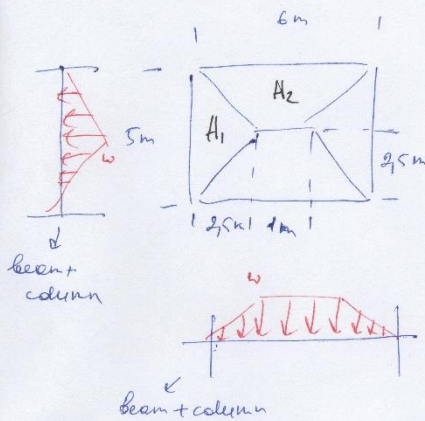 6m
A₁
A₂
5m
w
2,5m
2,5m
1m
beam +
column
w
beam + column